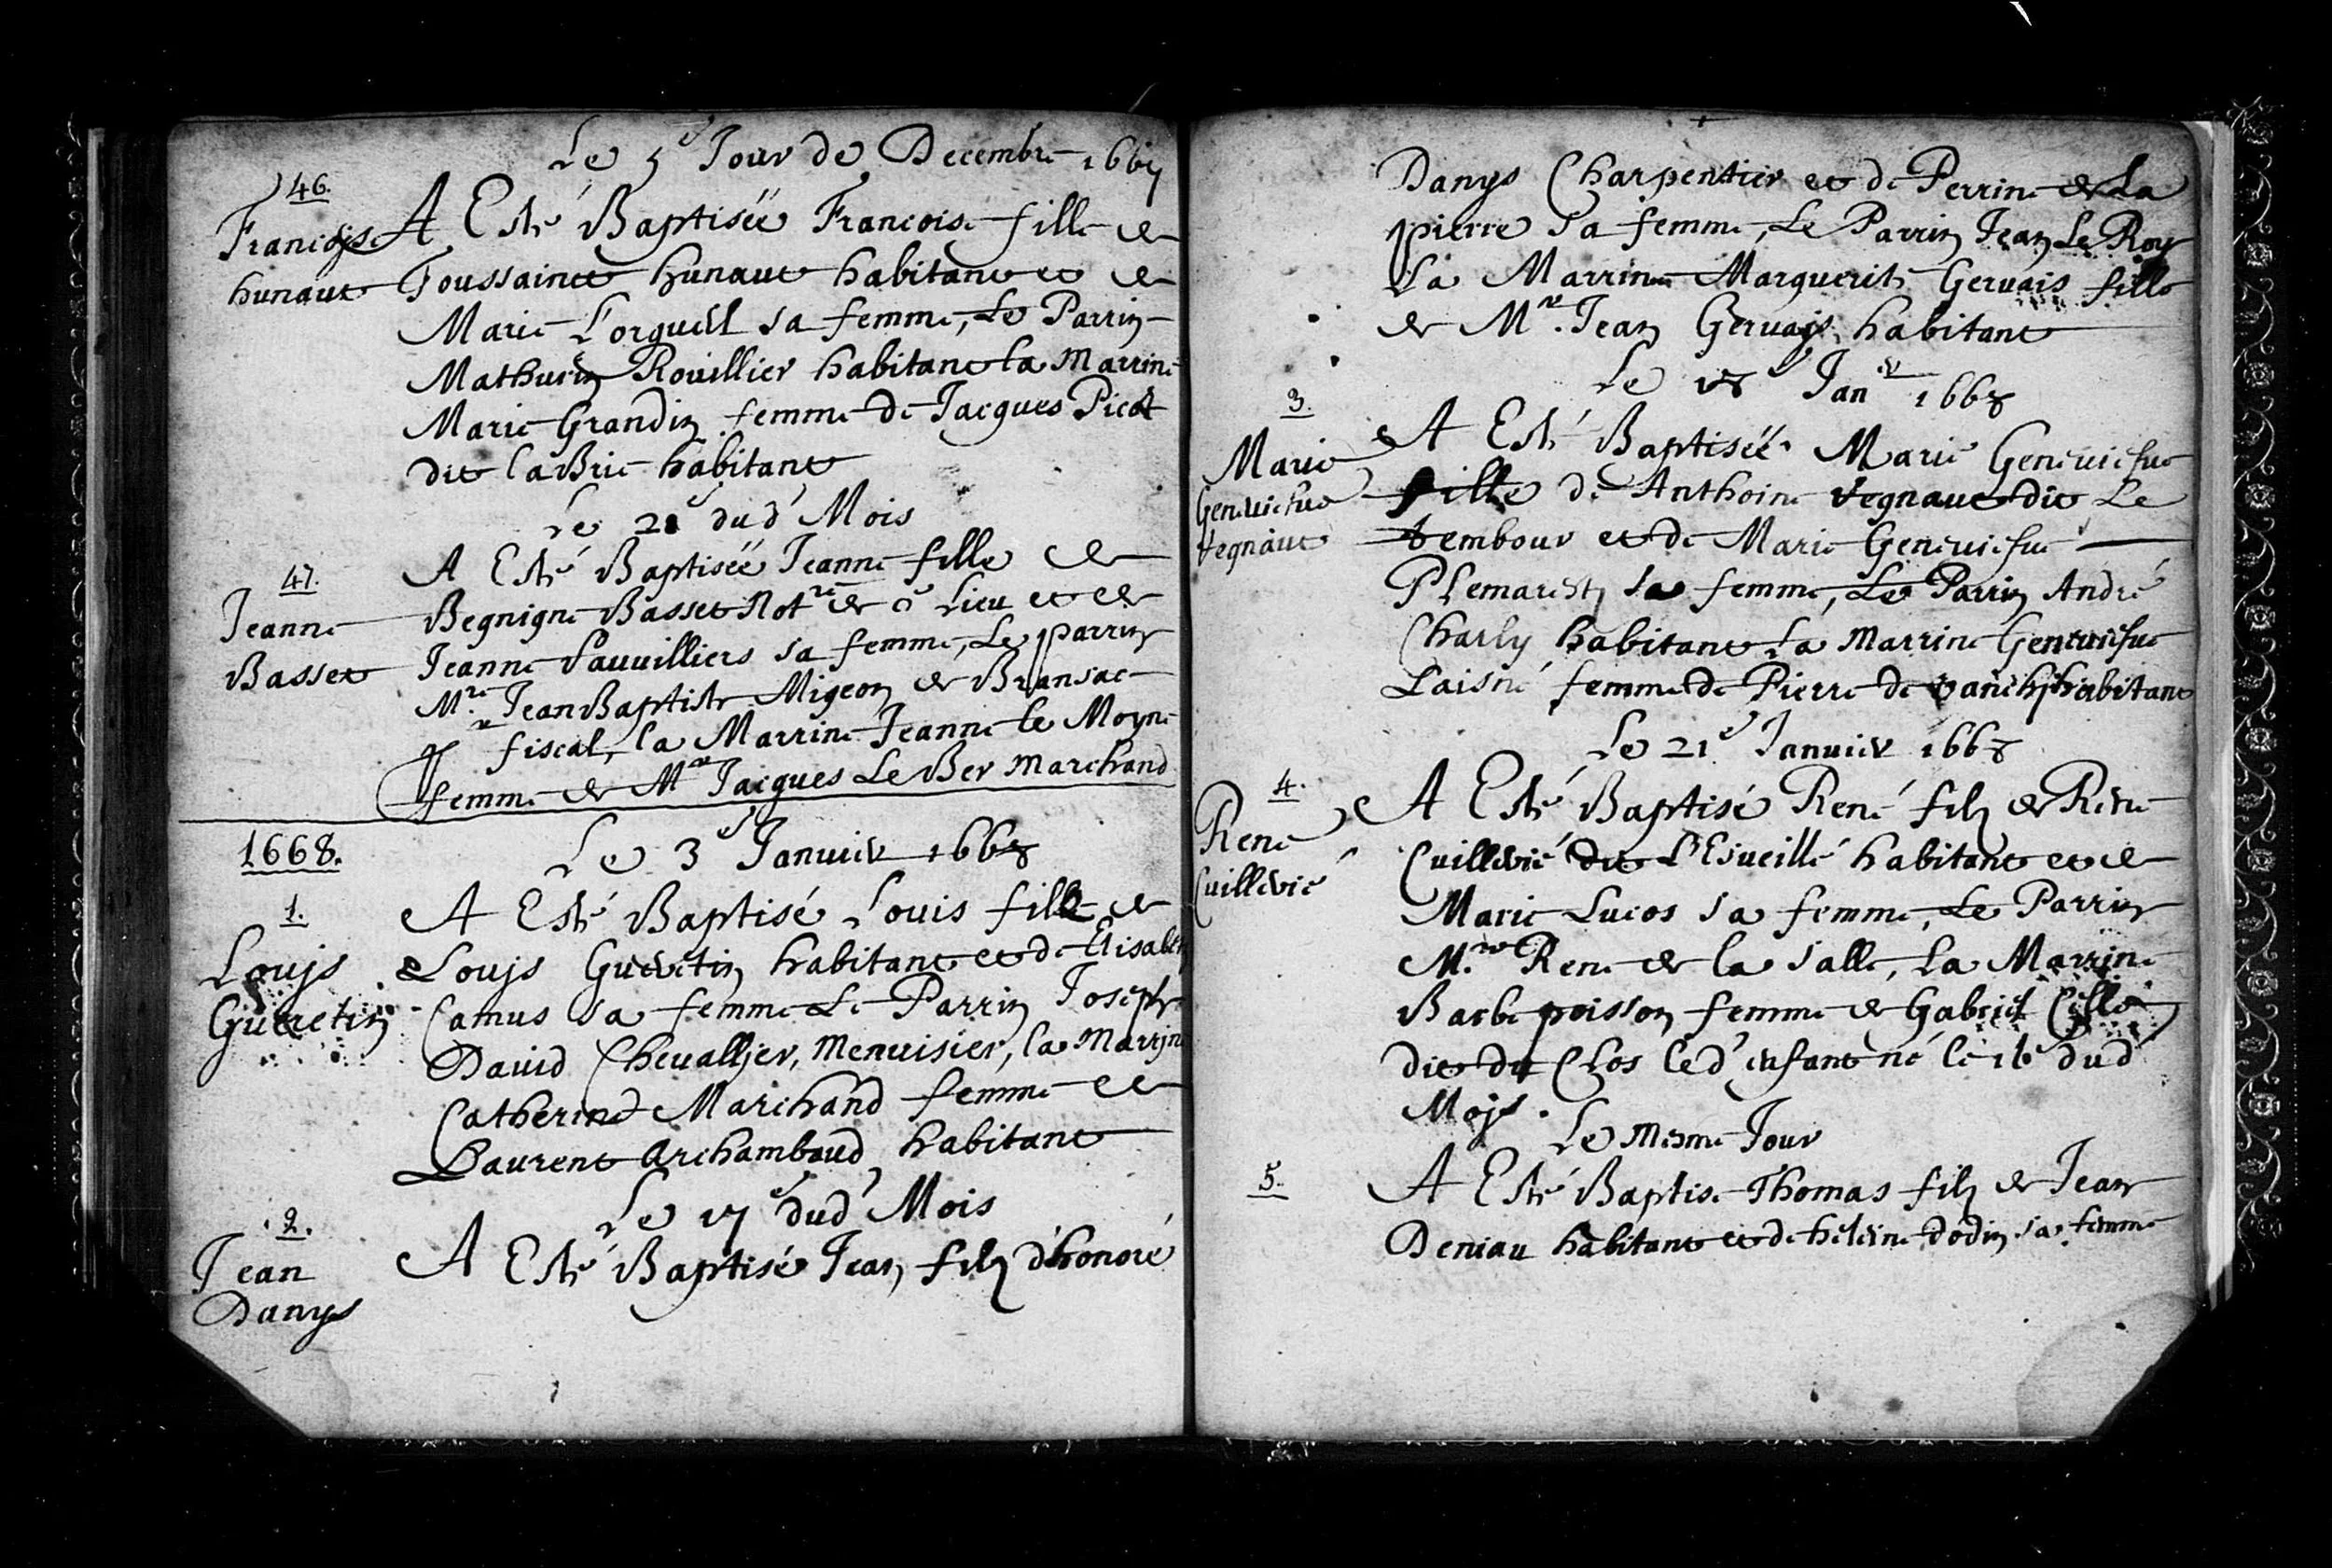 Le 5e Jour de Decembre 1667
46.
A Esté Baptisée Francoise fille de
Francoise
Toussainct hunaut habitant et de
hunaut
Marie Lorgueil sa femme, Le Parrin
Mathurin Rouillier habitant la Marrine
Marie Grandin femme de Jacques Picot
dit la Brie habitant
Le 21e dud Mois
47.
A Esté Baptisée Jeanne fille de
Jeanne
Begnigne Basset Notre de ce Lieu et de
Basset
Jeanne Vauvilliers sa femme, Le parrin
Mre Jean Baptiste Migeon de Bransac
fiscal, la Marrine Jeanne le Moyne
femme de Mre Jacques Le Ber Marchand
1668.
Le 3e Januier 1668
1.
A Esté Baptisé Louis fille de
Loujs
Loujs Gueretin habitant et de Elisabeth
Gueretin
Camus sa femme Le Parrin Joseph
Dauid Cheuallier, Menuisier, la Marrine
Catherine Marchand femme de
Laurent Archambaud habitant
Le 17e dud Mois
2.
A Esté Baptisé Jean filz dhonoré
Jean
Danys
Danys Charpentier et de Perrine de La
pierre sa femme, Le Parrin Jean Le Roy
La Marrine Marguerite Geruais fille
de Mre. Jean Geruajs habitant
Le 18e Janer 1668
3.
A Esté Baptisée Marie Geneuiefue
Marie
fille de Anthoine Regnaut dit Le
Geneuiefue
Regnaut
tembour et de Marie Geneuiefue
Plemaresty sa femme, Le Parrin André
Charly habitant La Marrine Geneuiefue
Laisné femme de Pierre de Vanchy habitant
Le 21e Januier 1668
4.
A Esté Baptisé René filz de René
René
Cuillerié dit L'Esueillé habitant et de
Cuillerié
Marie Lucos sa femme, Le Parrin
M.re René de la Salle, La Marrine
Barbe poisson femme de Gabriel Cellé
dit du Clos led enfant né le 16 dud
Mojs.
Le Mesme Jour
5.
A Esté Baptise Thomas filz de Jean
Deniau habitant et de heleine dodin sa femme